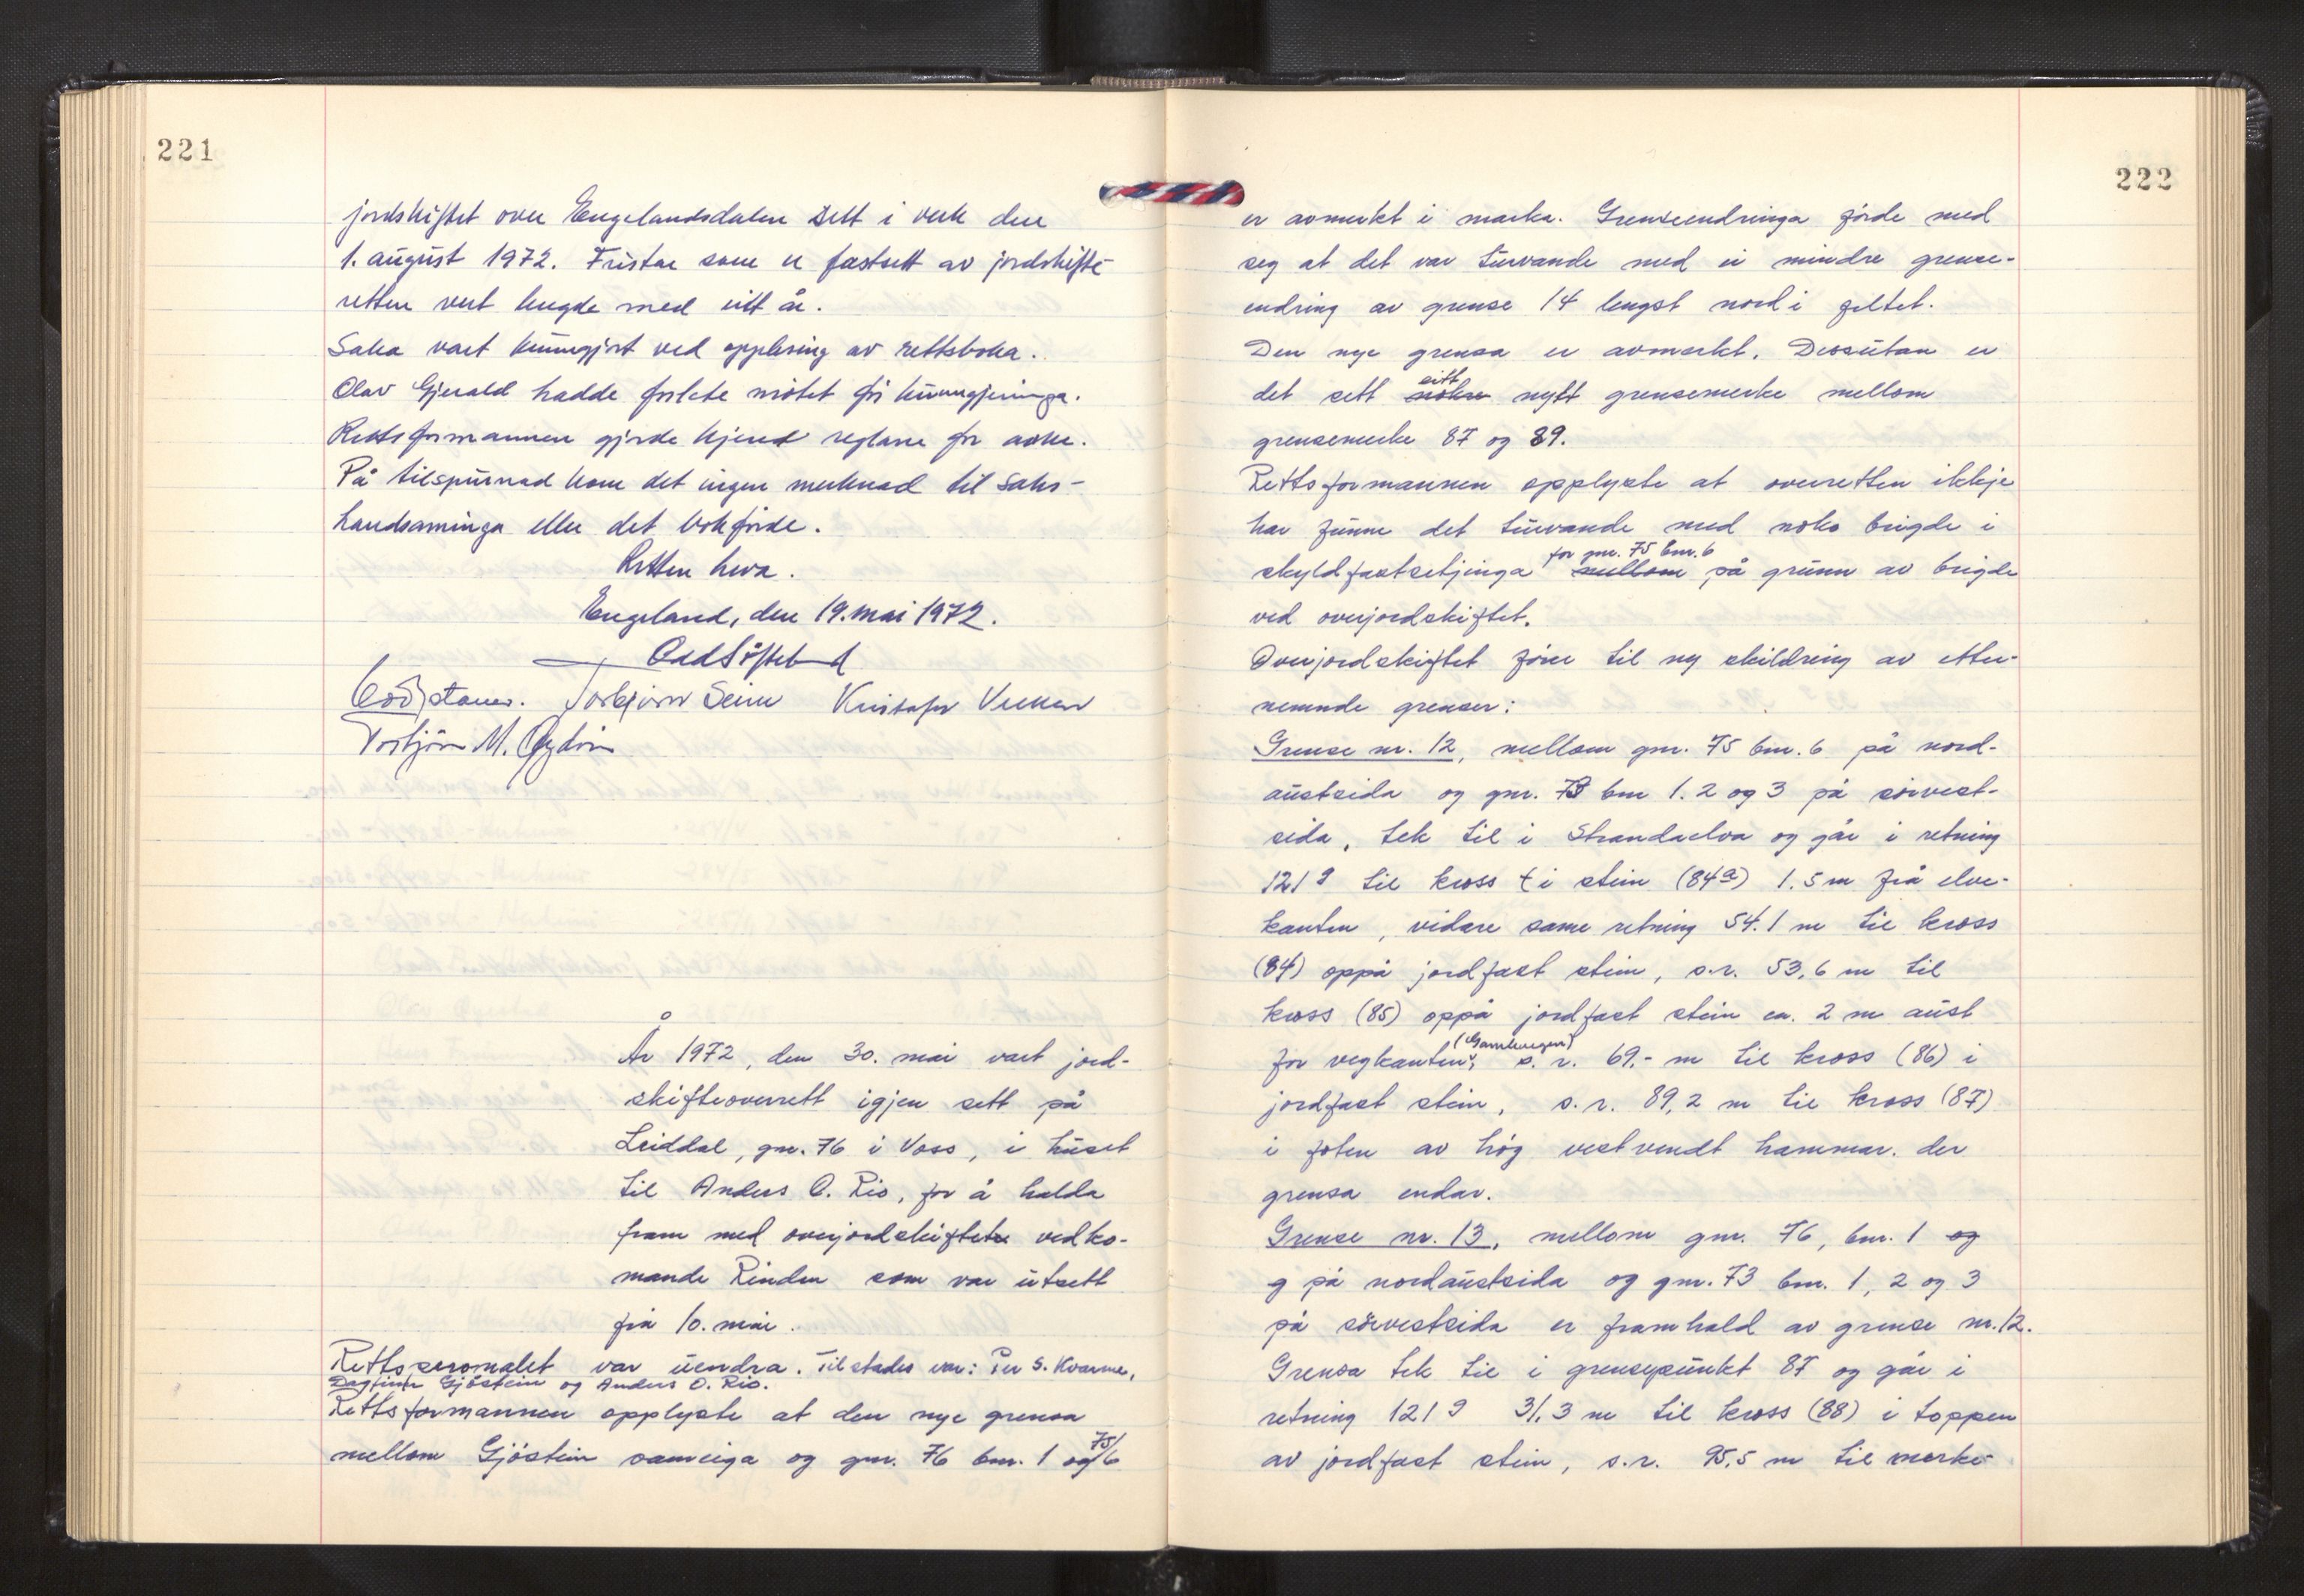 221
jordskiftet over Engelandsdalen sett i verk den
1. august 1972. Fristar som er fastsett av jordskifte-
retten vert lengde med eitt år.
Saka vart kunngjort ved opplesing av rettsboka.
Olav Gjerald hadde forlete møtet før kunngjeringa.
Rettsformannen gjorde kjend reglane for anke.
På tilspurnad kom det ingen merknad til saks-
handsaminga eller det bokførde.
Retten heva.
Engeland, den 19. mai 1972.
Torbjörn Seim Kristofer
Torbjörn M.
År 1972, den 30. mai vart jord-
skifteoverrett igjen sett på
Leiddal, gnr. 76 i Voss, i huset
til Anders O. Rio, for å halda
fram med overjordskiftet vedko-
mande Rinden som var utsett
frå 10. mai.
Rettspersonalet var uendra. Til stades var: Per S. Kvarme,
Dagfinn Gjöstein og Anders O. Rio.
Rettsformannen opplyste at den nye grensa
mellom Gjöstein sameiga og gnr. 76 bnr. 1 og 75/6
222
er avmerkt i marka. Grenseendringa förde med
seg at det var turvande med ei mindre grense-
endring av grense 14 lengst nord i feltet.
Den nye grensa er avmerkt. Dessutan er
det sett eitt nytt grensemerke mellom
grensemerke 87 og 89.
Rettsformannen opplyste at overretten ikkje
har funne det turvande med noko brigde i
skyldfastsetjinga for gnr. 75 bnr. 6 på grunn av brigde
ved overjordskiftet.
Overjordskiftet förer til ny skildring av etter-
nemnde grenser:
Grense nr. 12, mellom gnr. 75 bnr. 6 på nord-
austsida og gnr. 73 bnr 1. 2 og 3 på sörvest-
sida, tek til i Strandaelva og går i retning
121 g til kross + i stein (84a) 1.5 m frå elve-
kanten, vidare same retning 54.1 m til kross
(84) oppå jordfast stein, s.r. 53,6 m til
kross (85) oppå jordfast stein ca. 2 m aust
for vegkanten (Gamlevegen), s.r. 69,- m til kross (86) i
jordfast stein, s.r. 89,2 m til kross (87)
i foten av høg vestvendt hammar. der
grensa endar.
Grense nr. 13, mellom gnr. 76, bnr. 1 og
9 på nordaustsida og gnr. 73 bnr. 1, 2 og 3
på sörvestsida er framhald av grense nr. 12.
Grensa tek til i grensepunkt 87 og går i
retning 121 g 31,3 m til kross (88) i toppen
av jordfast stein, s.r. 95,5 m til merke-